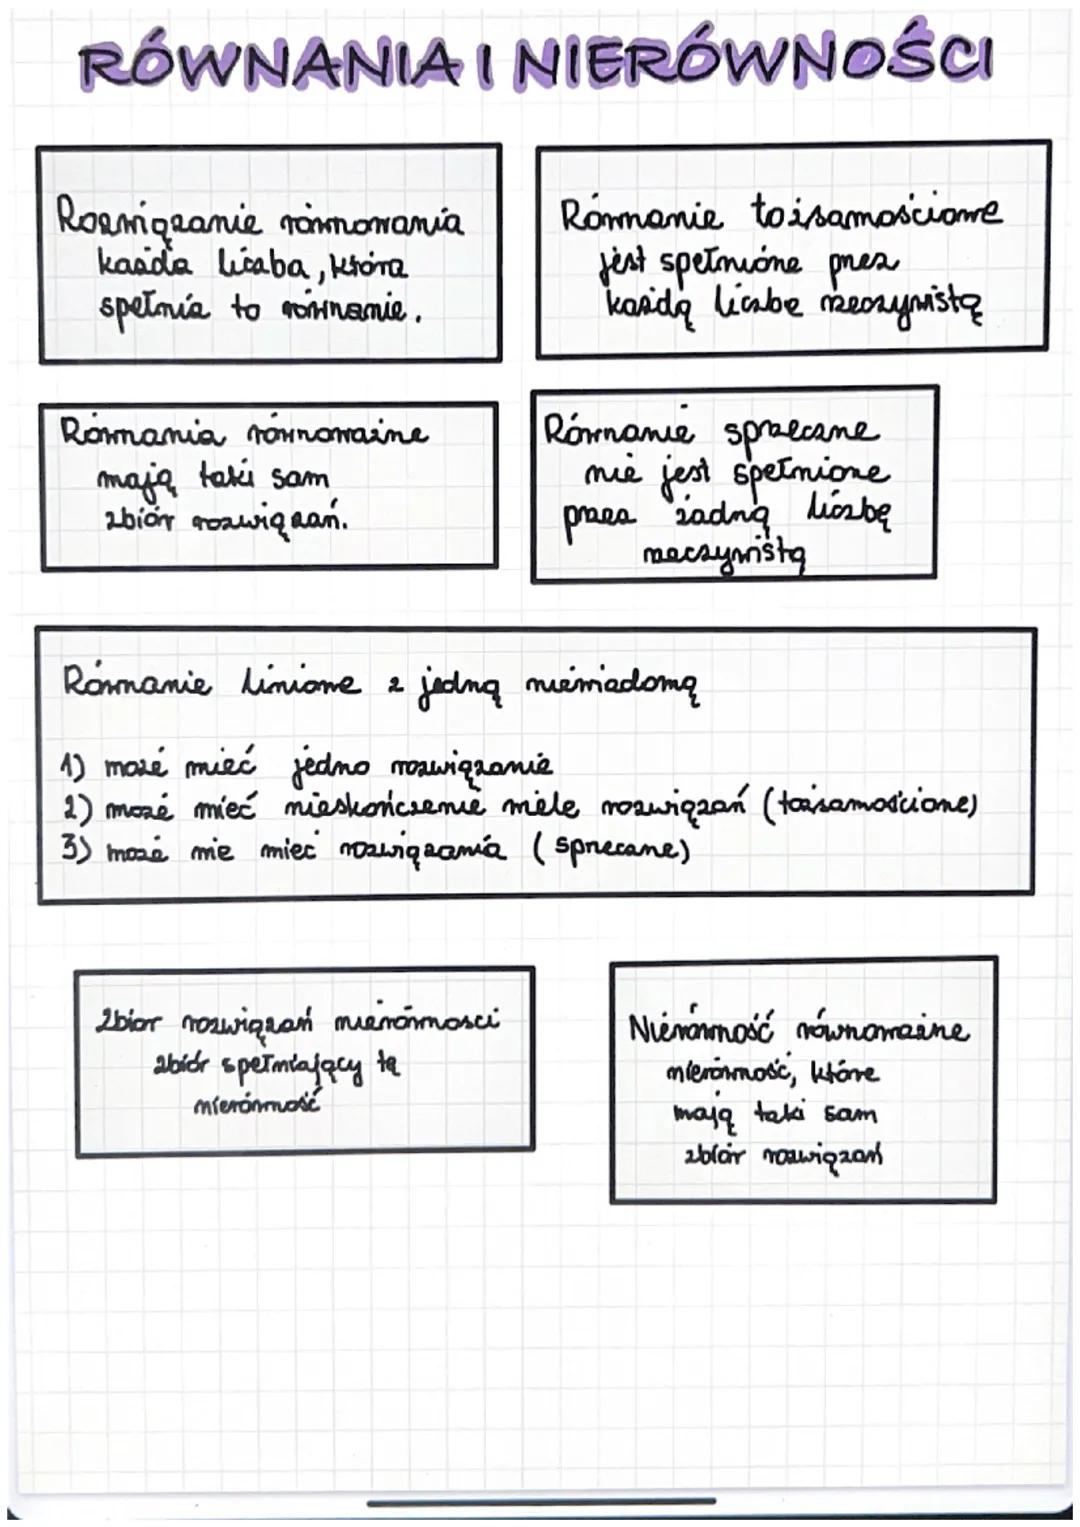 RÓWNANIA I NIERÓWNOŚCI
Rozwiązanie równowania
każda liczba, która
spełnia to równanie.
Równanie tożsamościowe
jest spełnione przez
każdą liczbę rzeczywistą
Równania równoważne
mają taki sam
zbiór rozwiązań.
Równanie sprzeczne
nie jest spełnione
przez żadną liczbę
rzeczywistą
Równanie liniowe z jedną niewiadomą
1) może mieć jedno rozwiązanie
2) może mieć nieskończenie wiele rozwiązań (tożsamościowe)
3) może nie mieć rozwiązania (sprzeczne)
Zbior rozwiązań nierówności
zbiór spełniający tę
nierówność
Nierówność równoważne
nierówność, które
mają taki sam
zbiór rozwiązań